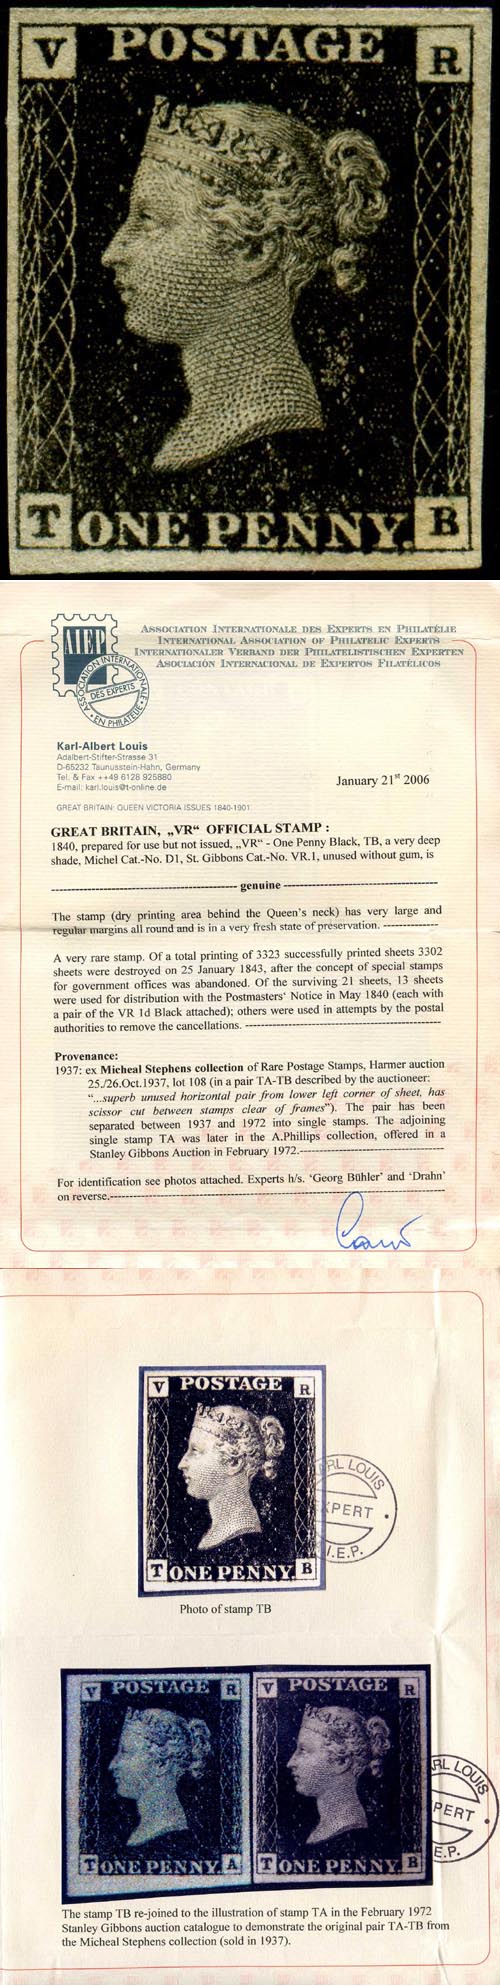 V POSTAGE R
T ONE PENNY. B
AIEP
ASSOCIATION INTERNATIONALE DES EXPERTS EN PHILATÉLIE
INTERNATIONAL ASSOCIATION OF PHILATELIC EXPERTS
INTERNATIONALER VERBAND DER PHILATELISTISCHEN EXPERTEN
ASOCIACIÓN INTERNACIONAL DE EXPERTOS FILATÉLICOS
ASSOCIATION INTERNATIONALE
DES EXPERTS
EN PHILATÉLIE
Karl-Albert Louis
Adalbert-Stifter-Strasse 31
D-65232 Taunusstein-Hahn, Germany
Tel. & Fax ++49 6128 925880
E-mail: karl.louis@t-online.de
January 21st 2006
GREAT BRITAIN: QUEEN VICTORIA ISSUES 1840-1901
GREAT BRITAIN, „VR“ OFFICIAL STAMP :
1840, prepared for use but not issued, „VR“ - One Penny Black, TB, a very deep
shade, Michel Cat.-No. D1, St. Gibbons Cat.-No. VR.1, unused without gum, is
genuine
The stamp (dry printing area behind the Queen's neck) has very large and
regular margins all round and is in a very fresh state of preservation.
A very rare stamp. Of a total printing of 3323 successfully printed sheets 3302
sheets were destroyed on 25 January 1843, after the concept of special stamps
for government offices was abandoned. Of the surviving 21 sheets, 13 sheets
were used for distribution with the Postmasters' Notice in May 1840 (each with
a pair of the VR 1d Black attached); others were used in attempts by the postal
authorities to remove the cancellations.
Provenance:
1937: ex Micheal Stephens collection of Rare Postage Stamps, Harmer auction
25./26.Oct.1937, lot 108 (in a pair TA-TB described by the auctioneer:
“...superb unused horizontal pair from lower left corner of sheet, has
scissor cut between stamps clear of frames”). The pair has been
separated between 1937 and 1972 into single stamps. The adjoining
single stamp TA was later in the A.Phillips collection, offered in a
Stanley Gibbons Auction in February 1972.
For identification see photos attached. Experts h/s. ‘Georg Bühler’ and ‘Drahn’
on reverse.
V POSTAGE R
T ONE PENNY. B
RL LOUIS
XPERT
I.E.P.
Photo of stamp TB
V POSTAGE R V POSTAGE R
T ONE PENNY. A T ONE PENNY. B
RL LOUIS
PERT
E.P.
The stamp TB re-joined to the illustration of stamp TA in the February 1972
Stanley Gibbons auction catalogue to demonstrate the original pair TA-TB from
the Micheal Stephens collection (sold in 1937).